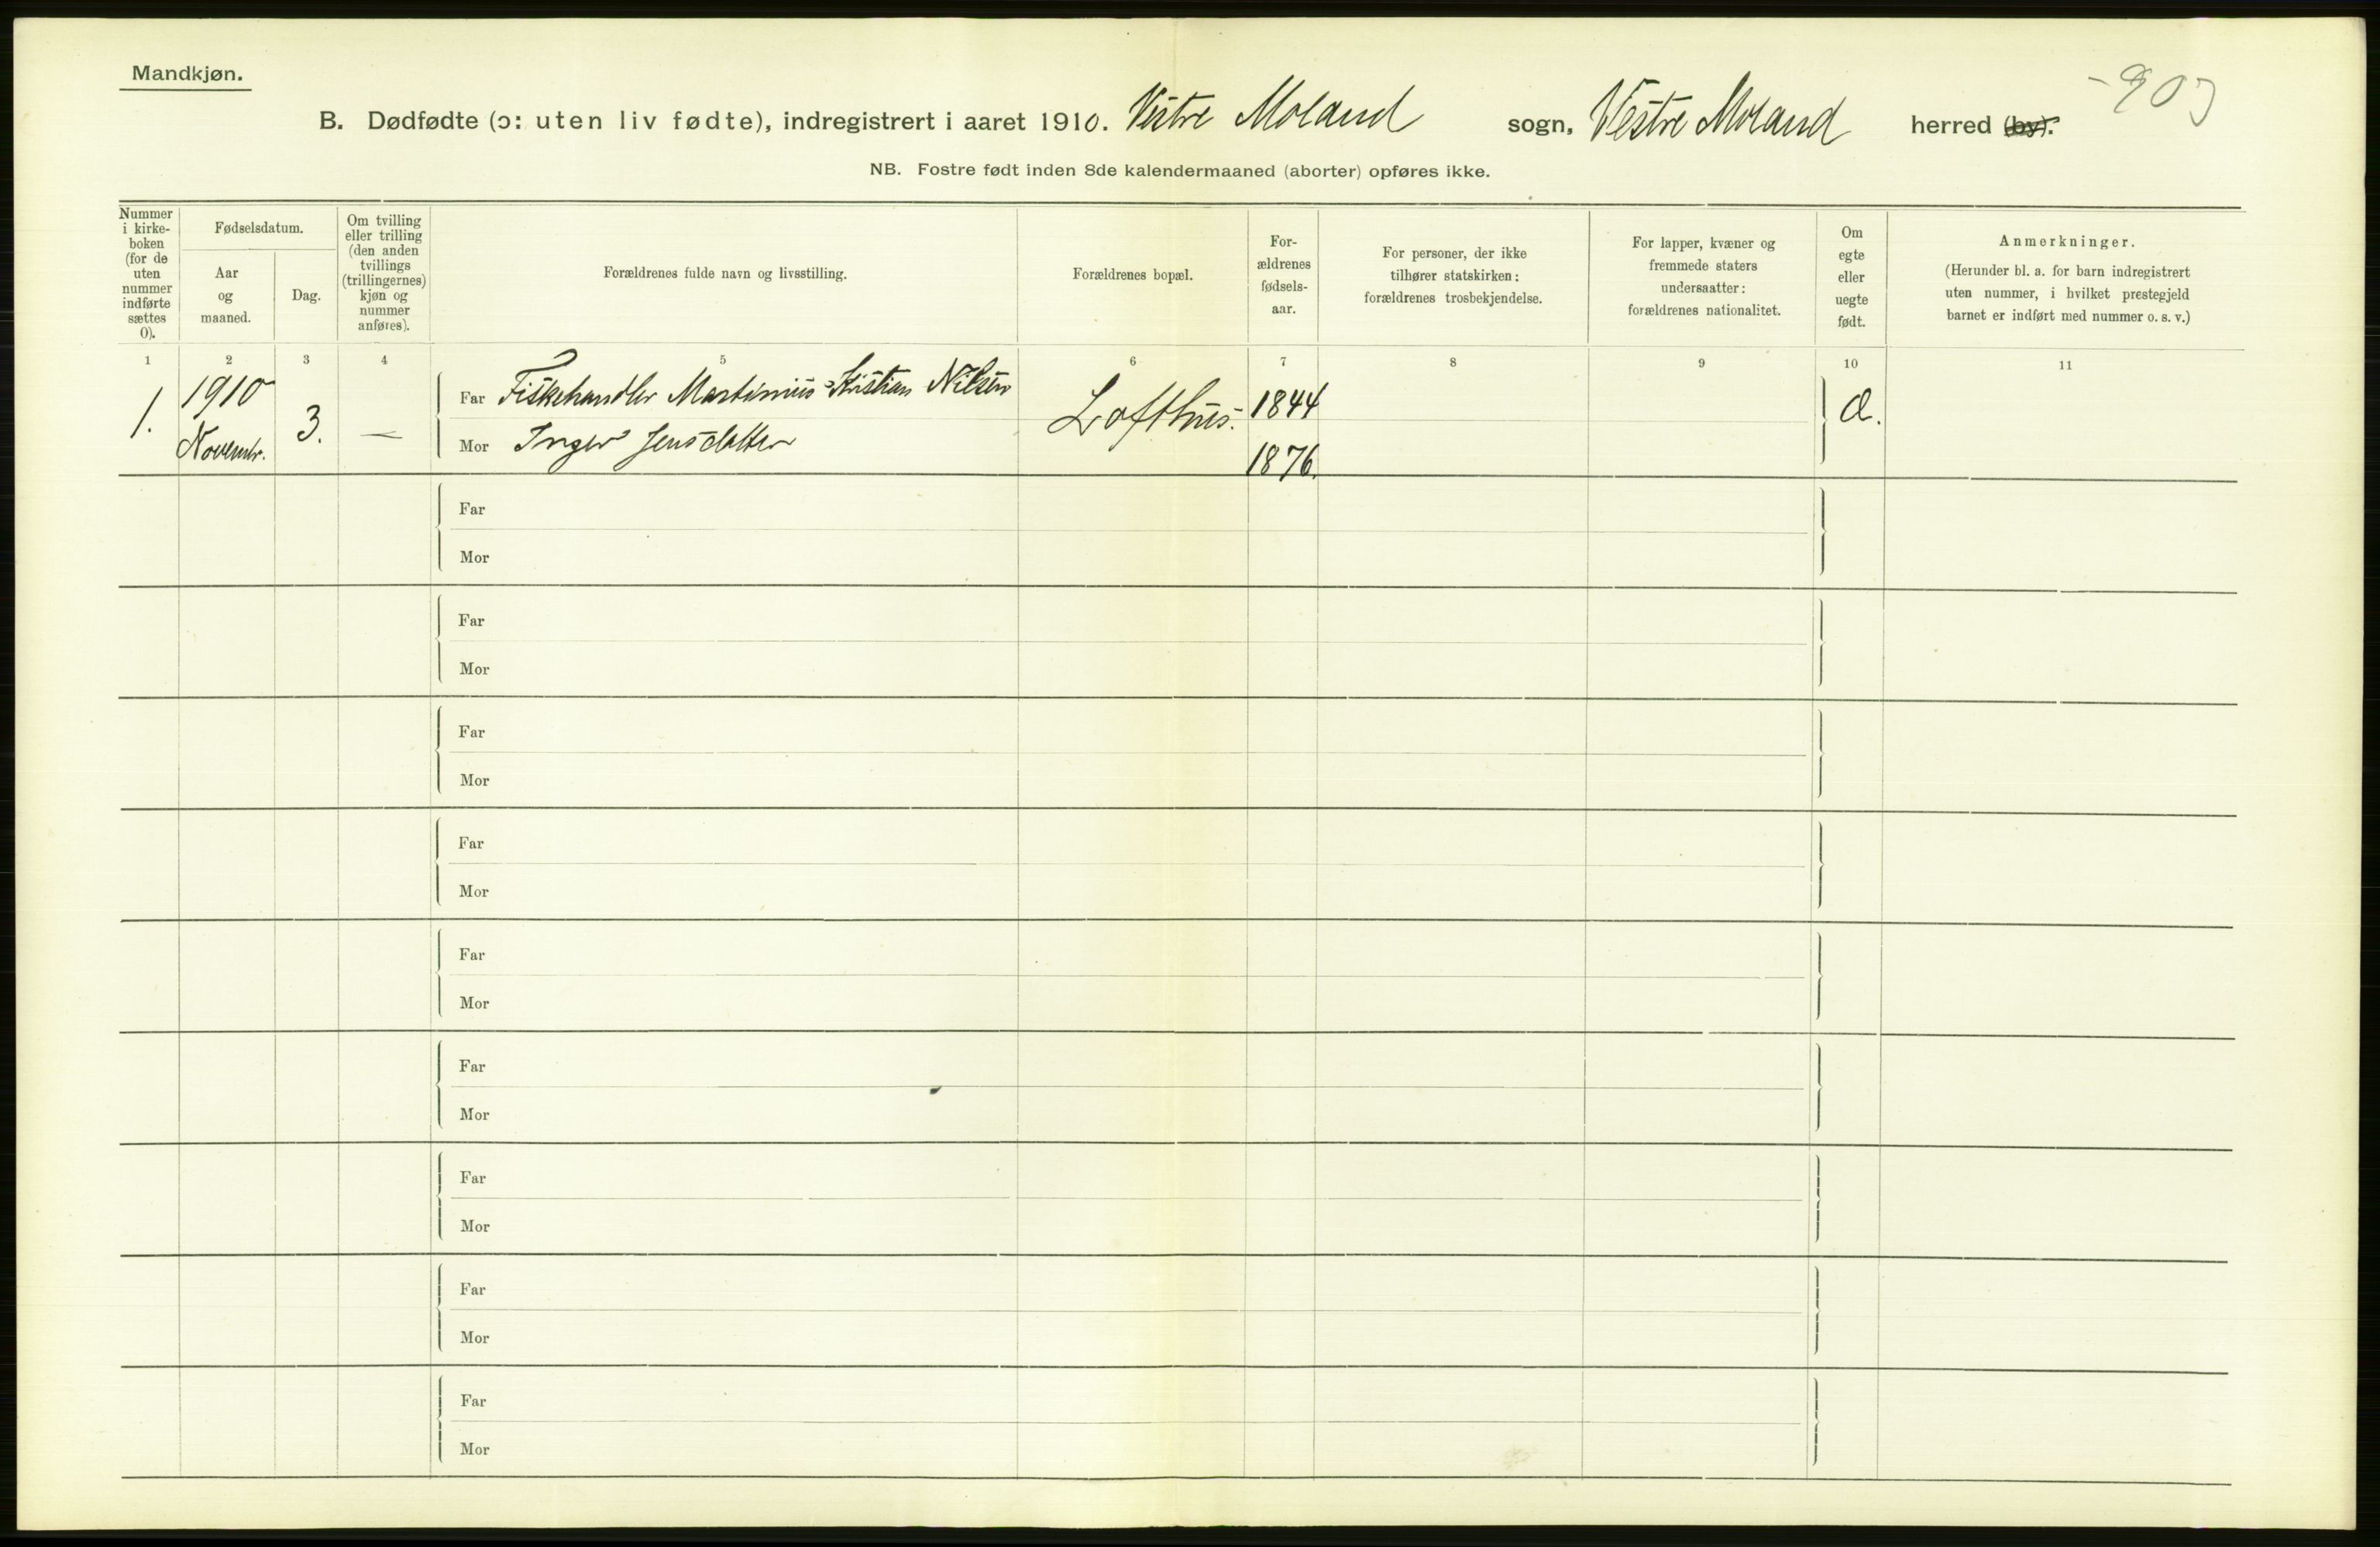 Mandkjøn.
B. Dødfødte (ɔ: uten liv fødte), indregistrert i aaret 1910. Vestre Moland sogn, Vestre Moland herred (by).
NB. Fostre født inden 8de kalendermaaned (aborter) opføres ikke.
Nummer
i kirke-
boken
(for de
uten
nummer
indførte
sættes
0).
Fødselsdatum.
Aar
og
maaned.
Dag.
Om tvilling
eller trilling
(den anden
tvillings
(trillingernes)
kjøn og
nummer
anføres).
Forældrenes fulde navn og livsstilling.
Forældrenes bopæl.
For-
ældrenes
fødsels-
aar.
For personer, der ikke
tilhører statskirken:
forældrenes trosbekjendelse.
For lapper, kvæner og
fremmede staters
undersaatter:
forældrenes nationalitet.
Om
egte
eller
uegte
født.
Anmerkninger.
(Herunder bl. a. for barn indregistrert
uten nummer, i hvilket prestegjeld
barnet er indført med nummer o. s. v.)
1 2 3 4 5 6 7 8 9 10 11
1. 1910 Novembr. 3. —
Far Fiskehandler Martinius Kristian Nilsen Lofthus. 1844
Mor Inger Jensdatter 1876.
Far
Mor
Far
Mor
Far
Mor
Far
Mor
Far
Mor
Far
Mor
Far
Mor
Far
Mor
Far
Mor